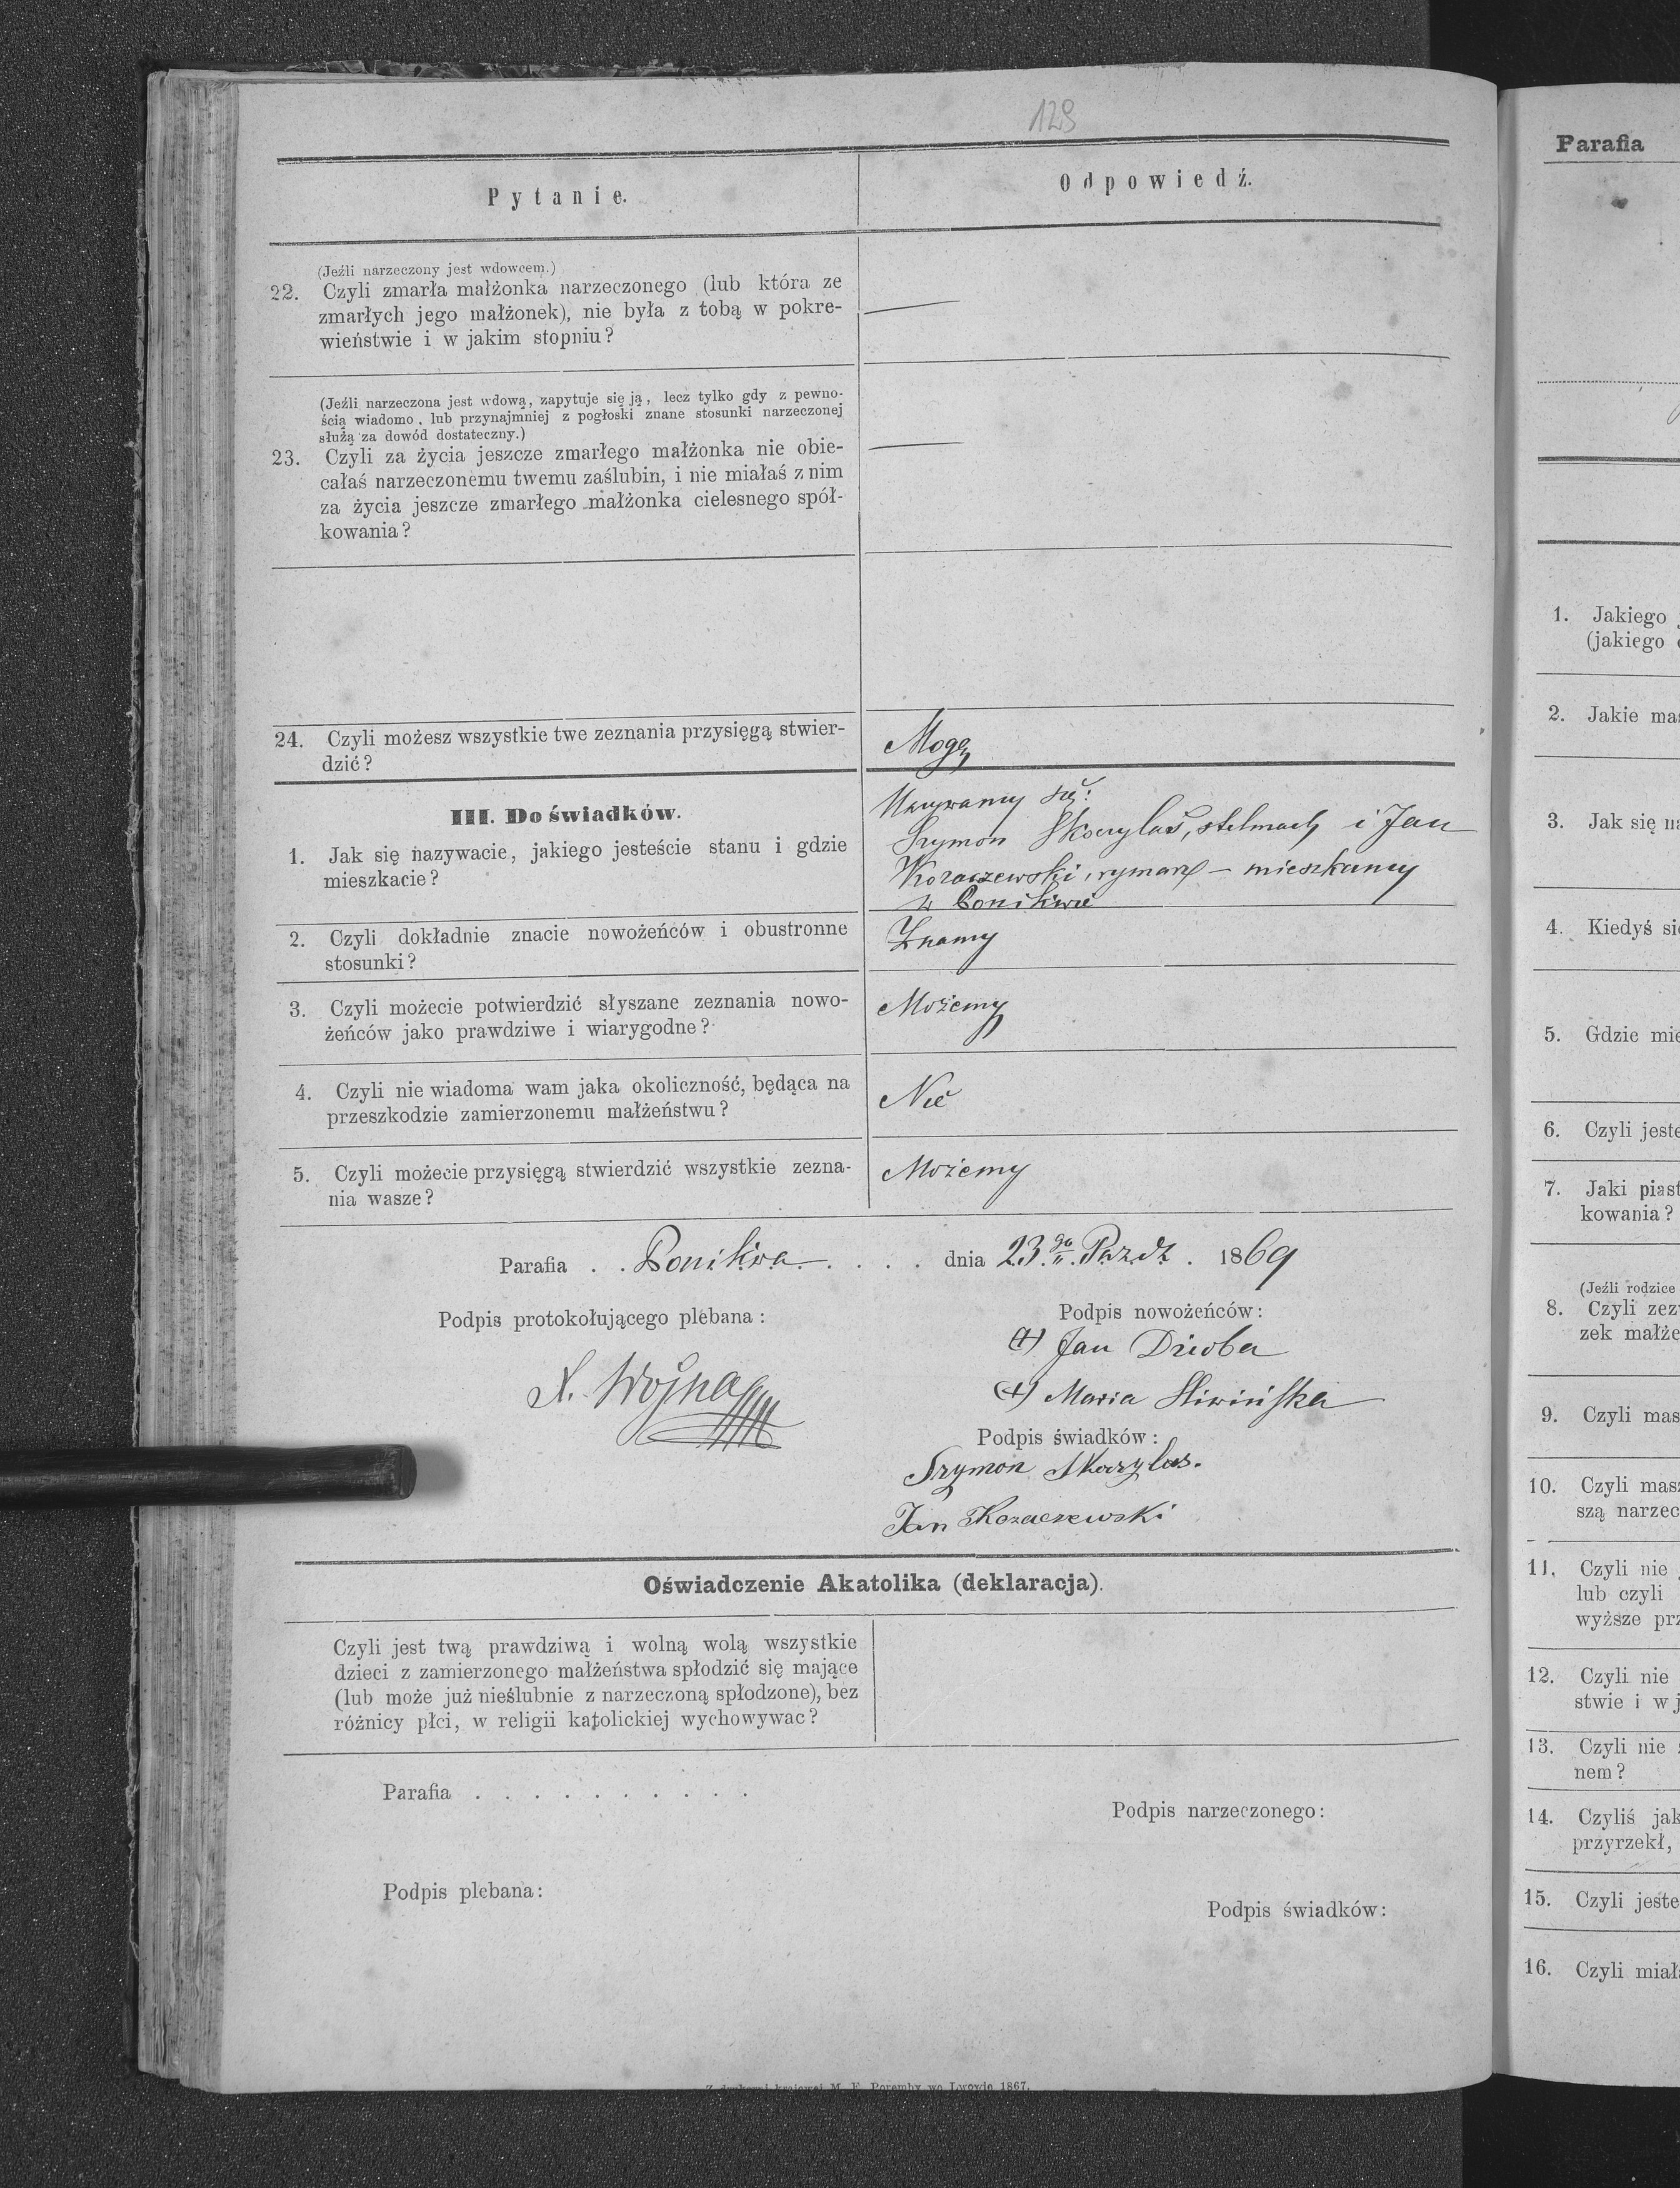 129
Pytanie.
Odpowiedź.
(Jeźli narzeczony jest wdowcem.)
22. Czyli zmarła małżonka narzeczonego (lub która ze
zmarłych jego małżonek), nie była z tobą w pokre-
wieństwie i w jakim stopniu?
—
(Jeźli narzeczona jest wdową, zapytuje się ją, lecz tylko gdy z pewno-
ścią wiadomo, lub przynajmniej z pogłoski znane stosunki narzeczonej
służą za dowód dostateczny.)
23. Czyli za życia jeszcze zmarłego małżonka nie obie-
całaś narzeczonemu twemu zaślubin, i nie miałaś z nim
za życia jeszcze zmarłego małżonka cielesnego spół-
kowania?
—
24. Czyli możesz wszystkie twe zeznania przysięgą stwier-
dzić?
Mogę
III. Do świadków.
1. Jak się nazywacie, jakiego jesteście stanu i gdzie
mieszkacie?
Nazywamy się:
Szymon Skoczylas, stelmach i Jan
Kozaczewski, rymarz – mieszkamy
w Ponikwie
2. Czyli dokładnie znacie nowożeńców i obustronne
stosunki?
Znamy
3. Czyli możecie potwierdzić słyszane zeznania nowo-
żeńców jako prawdziwe i wiarygodne?
Możemy
4. Czyli nie wiadoma wam jaka okoliczność, będąca na
przeszkodzie zamierzonemu małżeństwu?
Nie
5. Czyli możecie przysięgą stwierdzić wszystkie zezna-
nia wasze?
Możemy
Parafia . . Ponikwa . . . . dnia 23.go Pazdz. 1869
Podpis protokołującego plebana:
Podpis nowożeńców:
(+) Jan Dzioba
X. Wojna
(+) Maria Sliwińska
Podpis świadków:
Szymon Skoczylas.
Jan Kozaczewski
Oświadczenie Akatolika (deklaracja).
Czyli jest twą prawdziwą i wolną wolą wszystkie
dzieci z zamierzonego małżeństwa spłodzić się mające
(lub może już nieślubnie z narzeczoną spłodzone), bez
różnicy płci, w religii katolickiej wychowywac?
Parafia . . . . . . . . . .
Podpis narzeczonego:
Podpis plebana:
Podpis świadków:
Z drukarni krajowej M. F. Poremby we Lwowie 1867.
Parafia
1. Jakiego
(jakiego
2. Jakie
3. Jak się
4. Kiedyś
5. Gdzie
6. Czyli
7. Jaki
kowania?
(Jeźli rodzice
8. Czyli
zek
9. Czyli
10. Czyli
szą
11. Czyli nie
lub czyli
wyższe
12. Czyli nie
stwie i w
13. Czyli nie
nem?
14. Czyliś
przyrzekł,
15. Czyli
16. Czyli